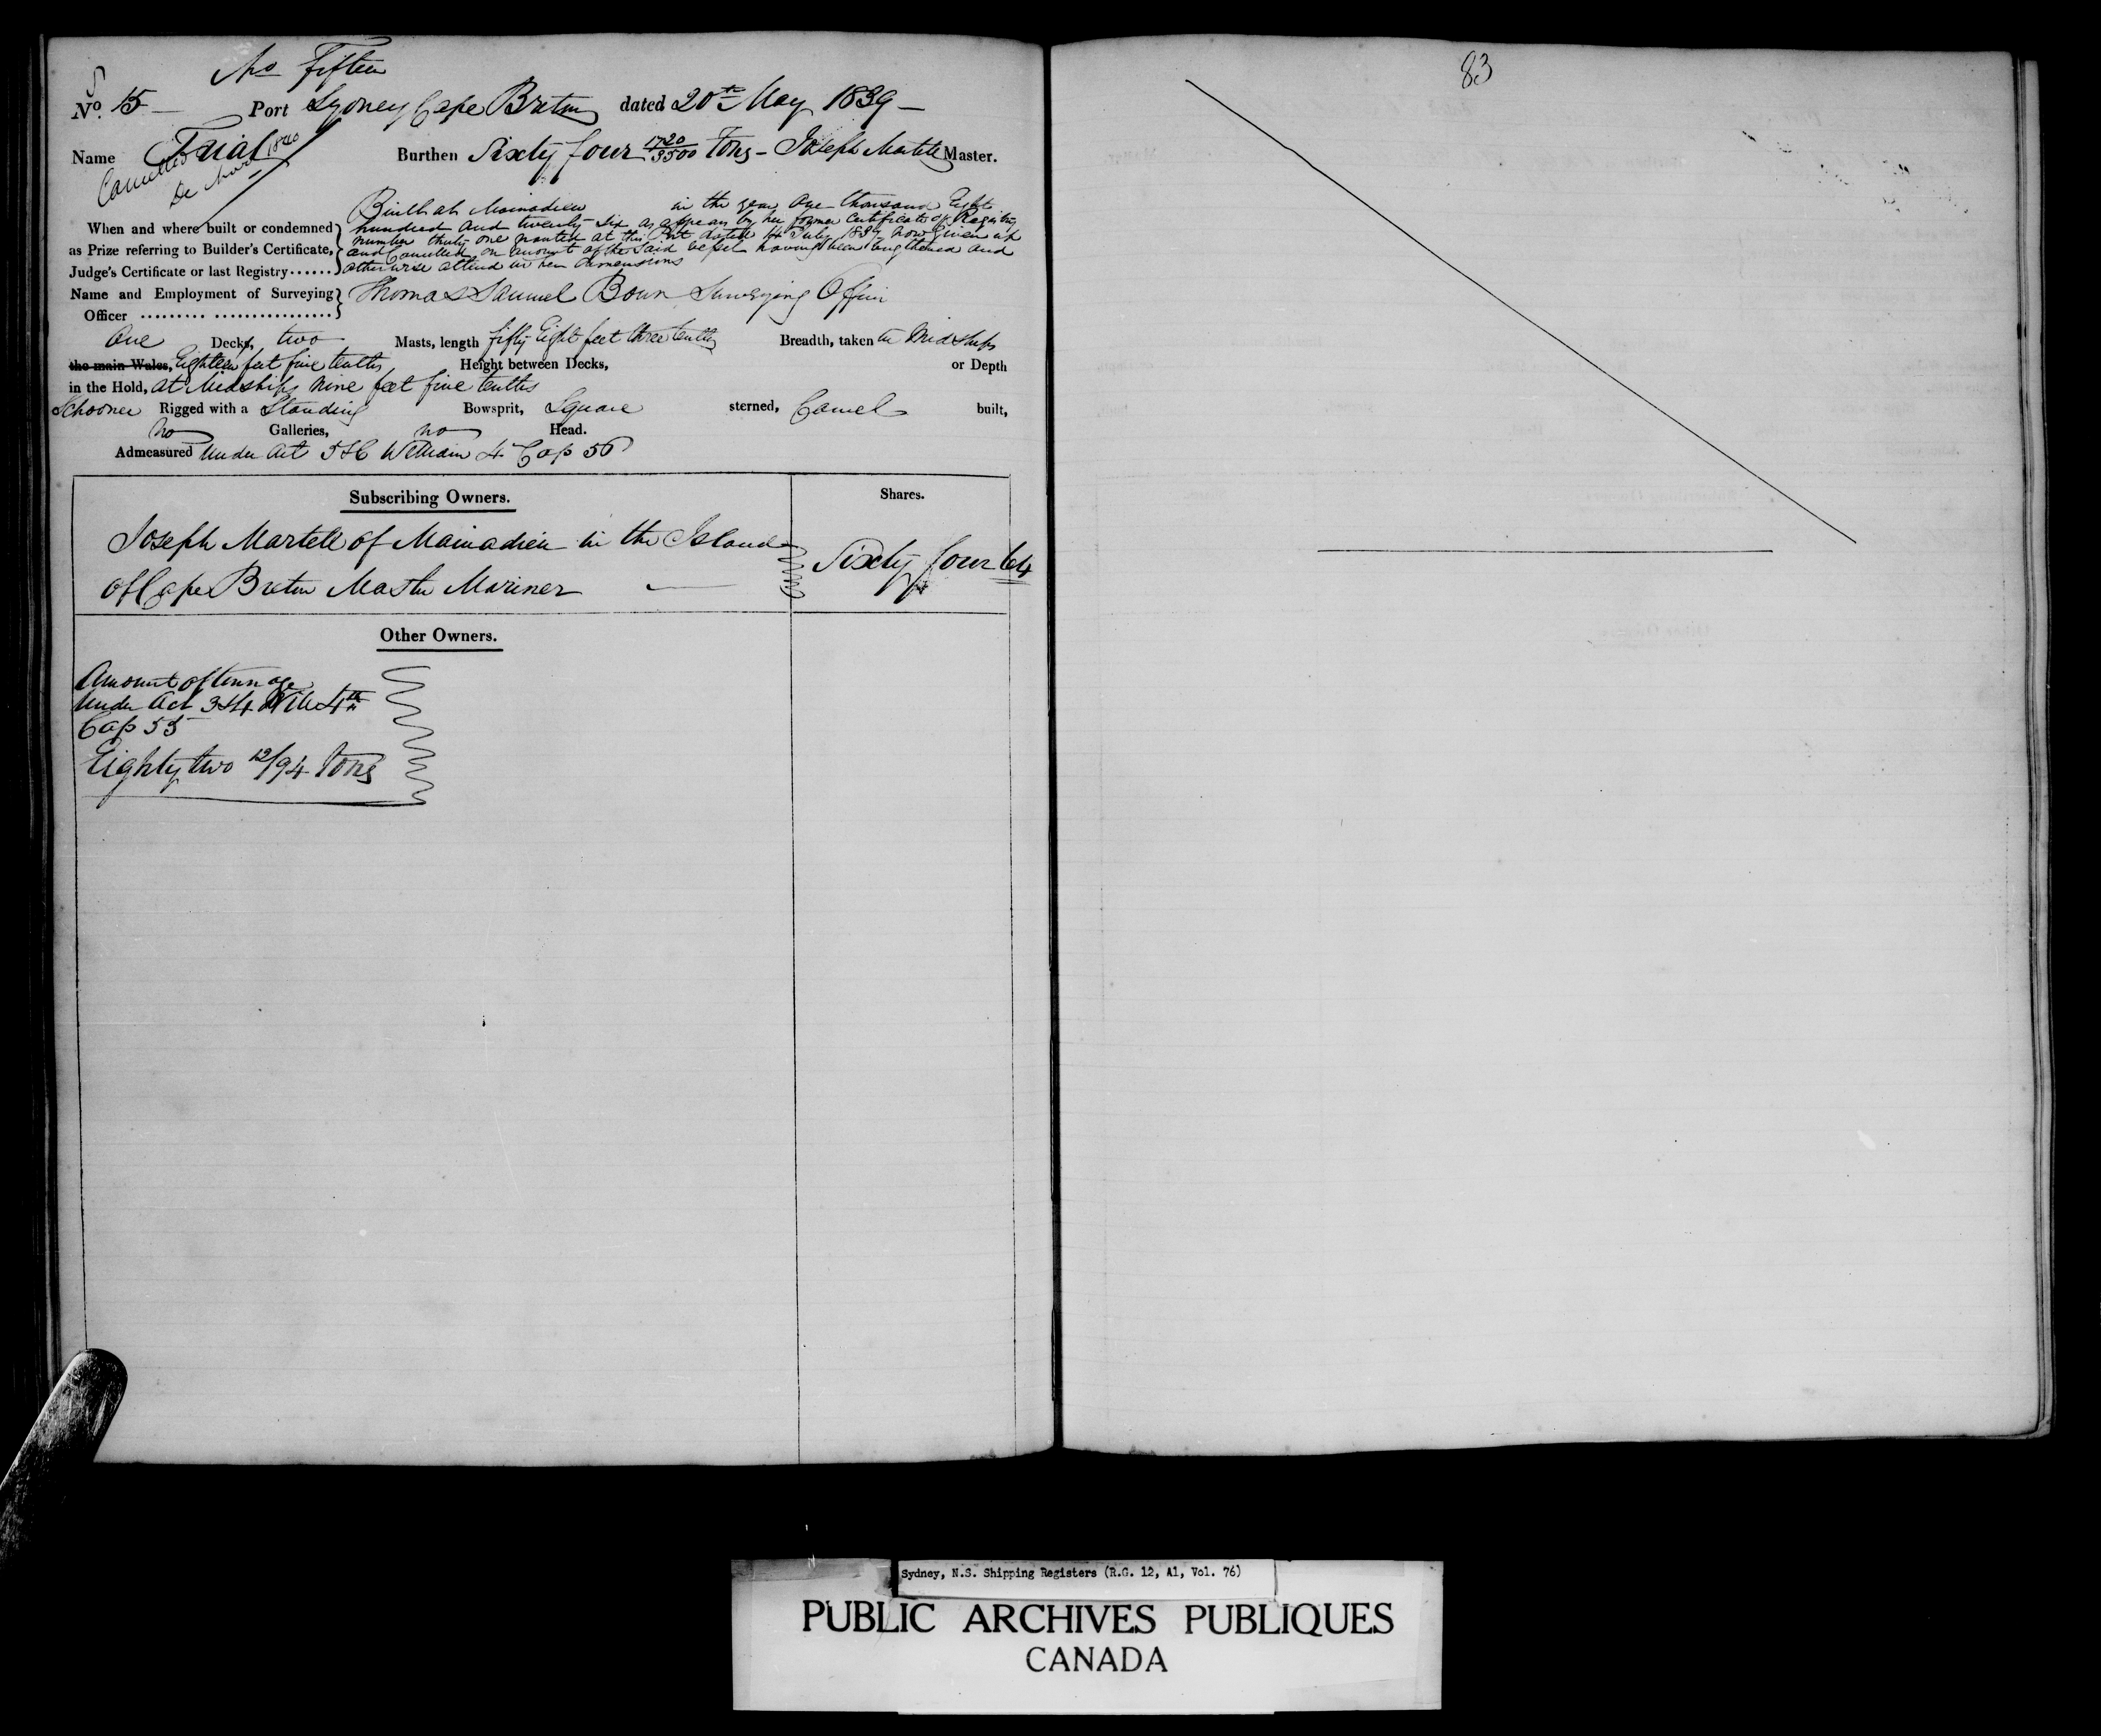 No Fifteen
No. 15 Port Sydney Cape Breton dated 20th May 1839
Name Trial Burthen Sixty four 1720/3500 Tons - Joseph Martell Master.
Cancelled De Novo 1840
Built at Mainadieu in the year One thousand Eight
When and where built or condemned hundred and twenty Six as appears by her former Certificate of Registry
as Prize referring to Builder's Certificate, number thirty one granted at this Port dated 14 July 1837 now given up
and Cancelled on account of the said vessel having been lengthened and
Judge's Certificate or last Registry...... otherwise altered in her dimensions
Name and Employment of Surveying Thomas Samuel Bown Surveying Officer
Officer ......... ................
One Decks, two Masts, length fifty Eight feet three tenths Breadth, taken in Midships
the main Wales, Eighteen feet five tenths Height between Decks, or Depth
in the Hold, at Midships nine feet five tenths
Schooner Rigged with a Standing Bowsprit, Square sterned, Carvel built,
no Galleries, no Head.
Admeasured under Act 5 & 6 William 4 Cap 56
Subscribing Owners. Shares.
Joseph Martell of Mainadieu in the Island
of Cape Breton Master Mariner Sixty four 64
Other Owners.
Amount of tonnage
under Act 3 & 4 Will 4th
Cap 55
Eighty two 12/94 Tons
83
Sydney, N.S. Shipping Registers (R.G. 12, A1, Vol. 76)
PUBLIC ARCHIVES PUBLIQUES
CANADA